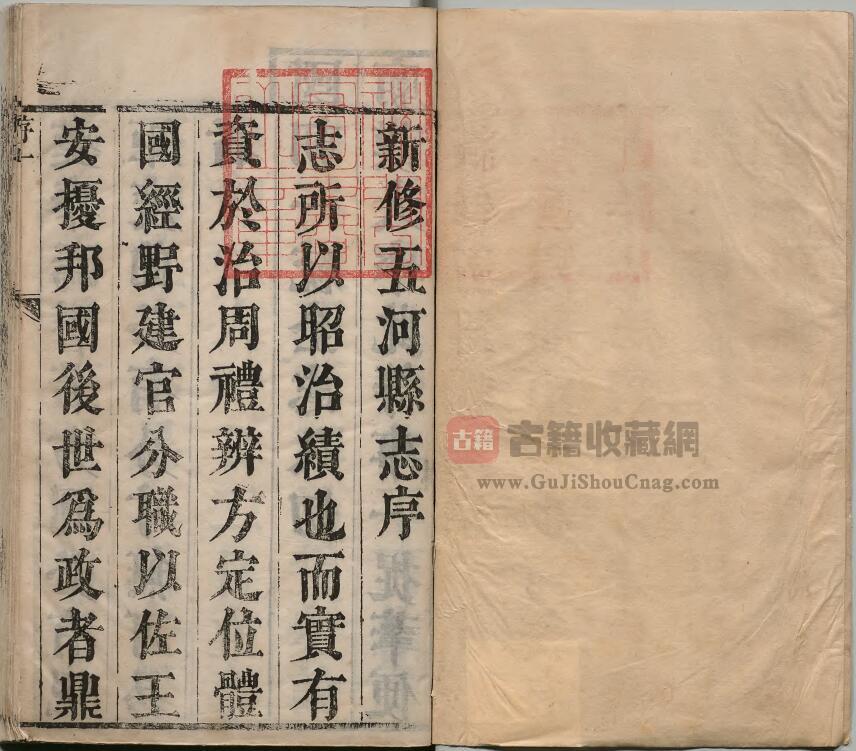 新修五河縣志序
志所以昭治績也而實有
資於治周禮辨方定位體
國經野建官分職以佐王
安擾邦國後世爲政者鼎
序一
古籍
古籍收藏網
www.GuJiShouCnag.com